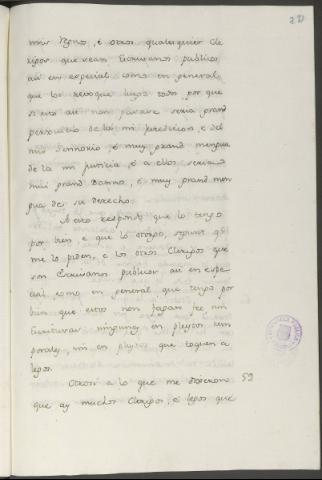 mis Reynos, é otros qualesquier Cle
rigos que sean Escrivanos publicos
asi en especial como en general
que los revoque luego todos, por que
si esto asi non pasase seria grand
perjuicio de la mi juredicion, é del
mio Sennorio, é muy grand mengua
de la mi justicia, é á ellos seria
mui grand Danno, é muy grand men
gua de su derecho.
A esto respondo que lo tengo
por bien é que lo otorgo, segunt que
me lo piden, é los otros Clerigos que
son Escrivanos publicos asi en espe
cial como en general, que tengo por
bien que estos non fagan fee nin
Escrituras ningunas en pleytos tem
porales, nin en pleytos que toquen a
legos.
Otrosi a lo que me dixeron 59
que ay muchos Clerigos, é legos que